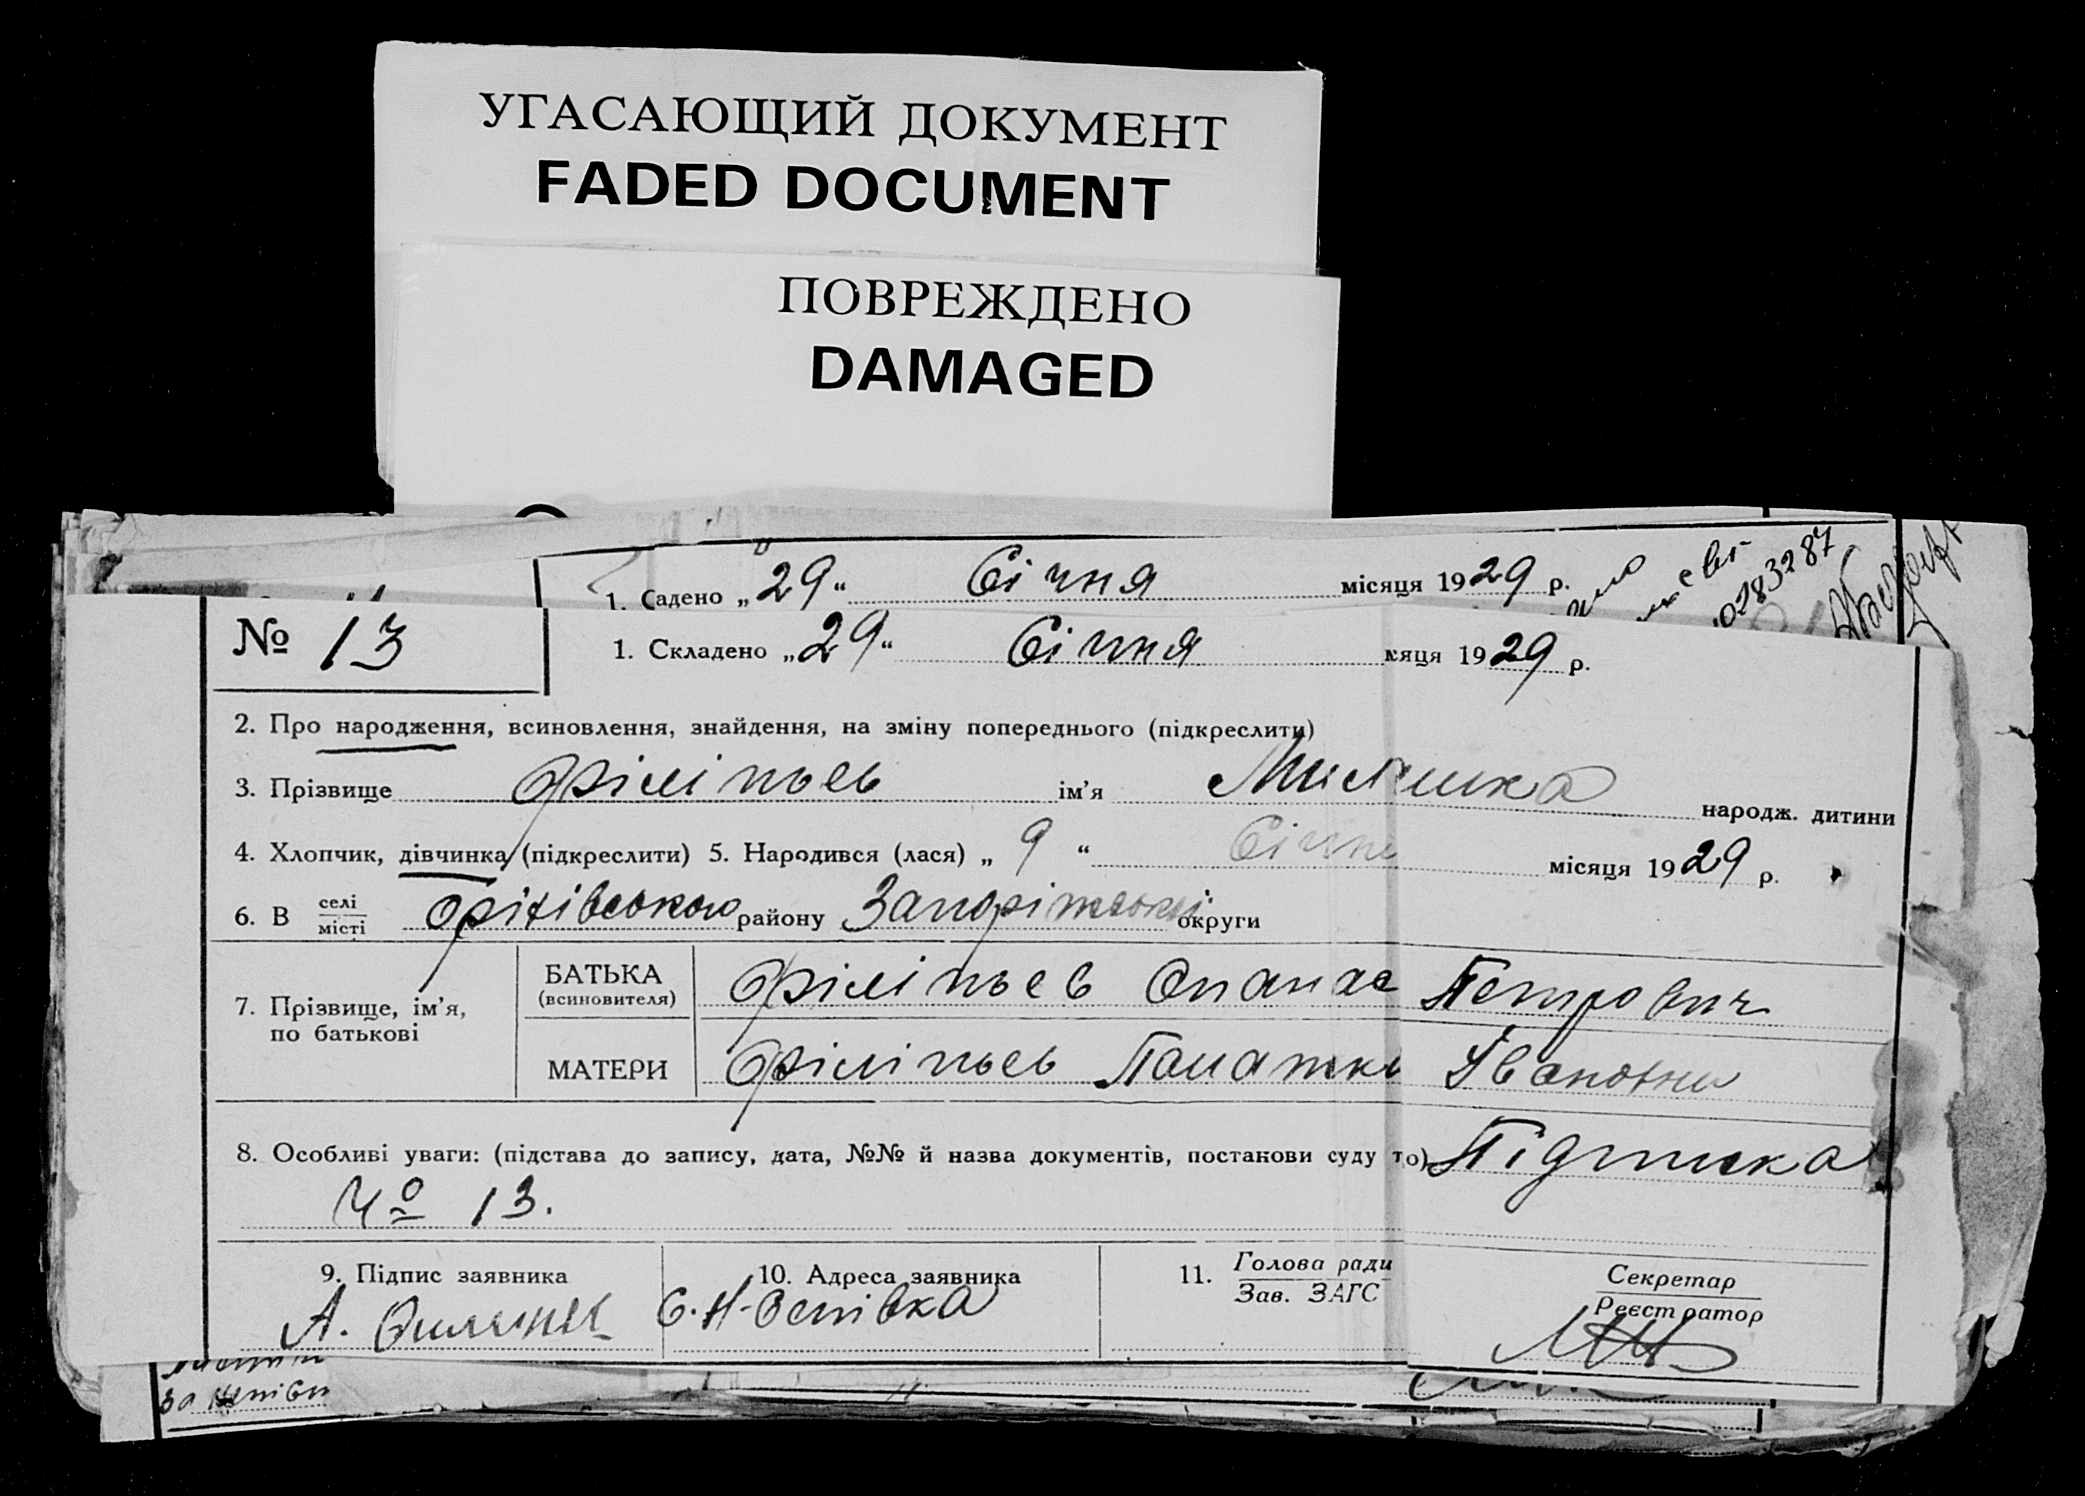 УГАСАЮЩИЙ ДОКУМЕНТ
FADED DOCUMENT
ПОВРЕЖДЕНО
DAMAGED
1. Садено „29“ Січня місяця 1929 р.
0283287
№ 13
1. Складено „29“ Січня сяця 1929 р.
2. Про народження, всиновлення, знайдення, на зміну попереднього (підкреслити)
3. Прізвище Філіпьев ім’я народж. дитини
4. Хлопчик, дівчинка (підкреслити) 5. Народився (лася) „ 9 “ Січня місяця 1929 р.
6. В селі
місті Оріхівського району Запоріжської округи
7. Прізвище, ім’я,
по батькові
БАТЬКА
(всиновителя)
Філіпьев Опанас Петрович
МАТЕРИ
Філіпьев Івановна
8. Особливі уваги: (підстава до запису, дата, №№ й назва документів, постанови суду то) Підписка
Чº 13.
9. Підпис заявника
А.
10. Адреса заявника
С. Н-Осипівка
11. Голова ради
Зав. ЗАГС
Секретар
Реєстратор